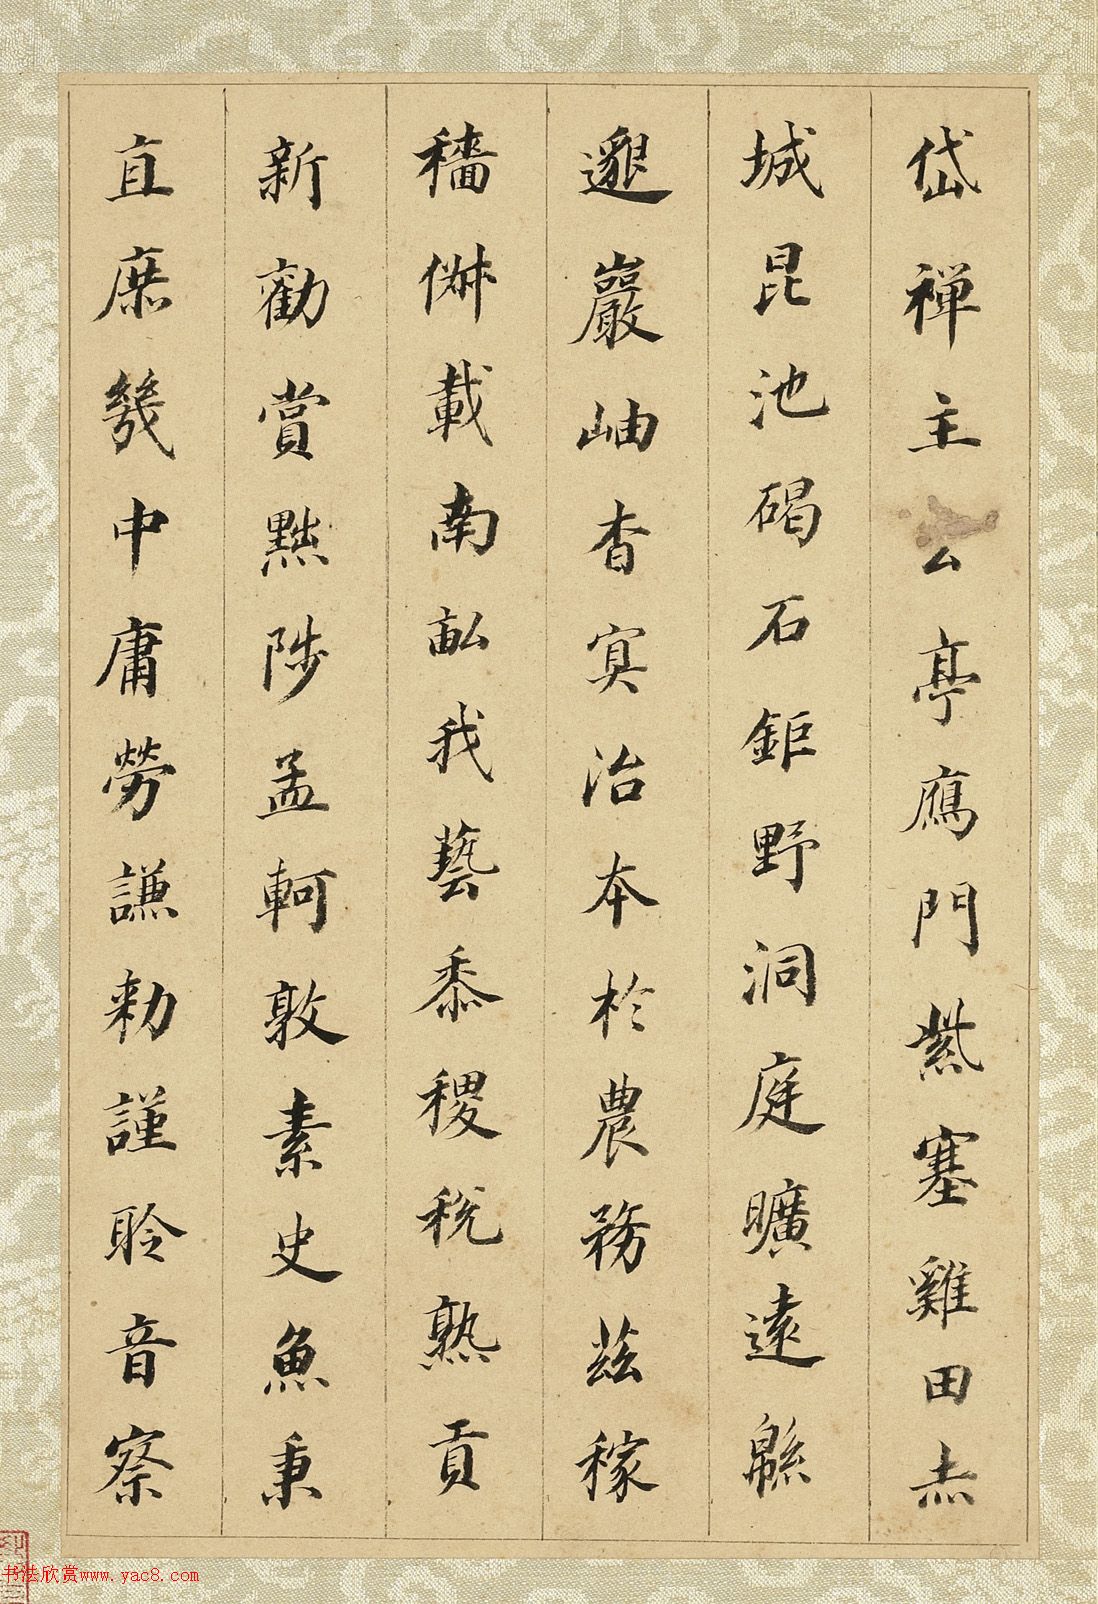 岱禪主云亭鴈門紫塞雞田赤
城昆池碣石鉅野洞庭曠遠緜
邈巖岫杳冥治本於農務茲稼
穡俶載南畝我藝黍稷稅熟貢
新勸賞黜陟孟軻敦素史魚秉
直庶幾中庸勞謙勑謹聆音察
书法欣赏www.yac8.com